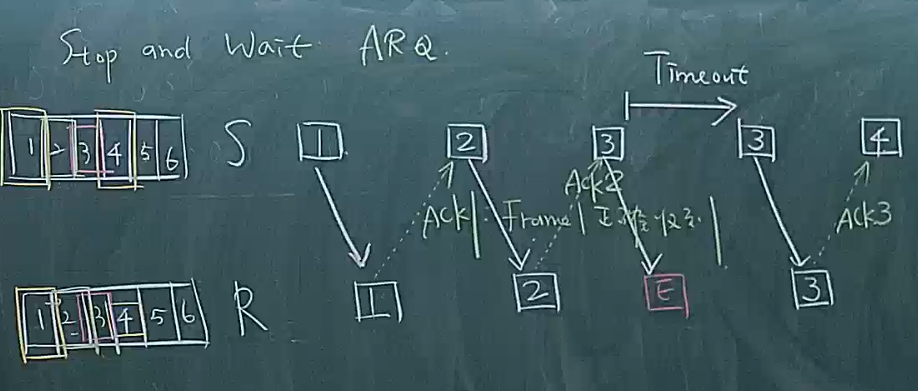 Stop and Wait ARQ.
Timeout
1 2 3 4 5 6 S 1 2 3 3 4
Ack2
Ack1 Frame1 正確收 Ack3
1 2 3 4 5 6 R 1 2 E 3